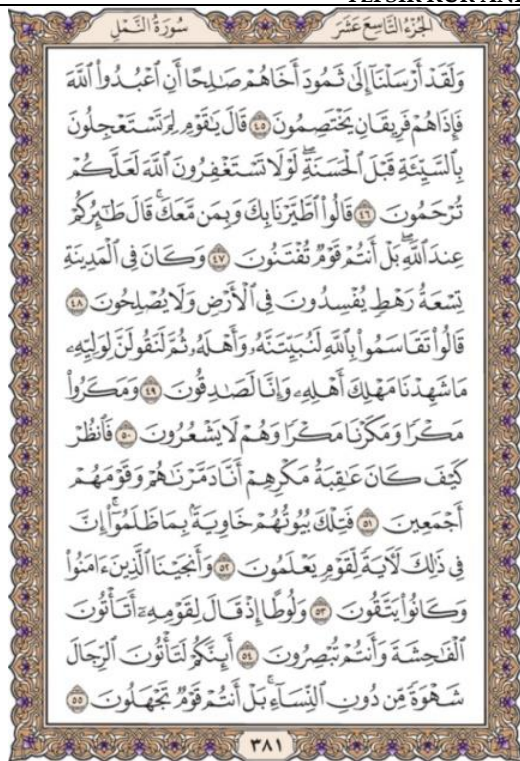 TEFSIR KUR'AN
سُورَةُ النَّمْلِ
الجُزْءُ التَّاسِعَ عَشَرَ
وَلَقَدْ أَرْسَلْنَآ إِلَىٰ ثَمُودَ أَخَاهُمْ صَٰلِحًا أَنِ ٱعْبُدُوا۟ ٱللَّهَ
فَإِذَا هُمْ فَرِيقَانِ يَخْتَصِمُونَ ٤٥ قَالَ يَٰقَوْمِ لِمَ تَسْتَعْجِلُونَ
بِٱلسَّيِّئَةِ قَبْلَ ٱلْحَسَنَةِ ۖ لَوْلَا تَسْتَغْفِرُونَ ٱللَّهَ لَعَلَّكُمْ
تُرْحَمُونَ ٤٦ قَالُوا۟ ٱطَّيَّرْنَا بِكَ وَبِمَن مَّعَكَ ۚ قَالَ طَٰٓئِرُكُمْ
عِندَ ٱللَّهِ ۖ بَلْ أَنتُمْ قَوْمٌ تُفْتَنُونَ ٤٧ وَكَانَ فِى ٱلْمَدِينَةِ
تِسْعَةُ رَهْطٍ يُفْسِدُونَ فِى ٱلْأَرْضِ وَلَا يُصْلِحُونَ ٤٨
قَالُوا۟ تَقَاسَمُوا۟ بِٱللَّهِ لَنُبَيِّتَنَّهُۥ وَأَهْلَهُۥ ثُمَّ لَنَقُولَنَّ لِوَلِيِّهِۦ
مَا شَهِدْنَا مَهْلِكَ أَهْلِهِۦ وَإِنَّا لَصَٰدِقُونَ ٤٩ وَمَكَرُوا۟
مَكْرًا وَمَكَرْنَا مَكْرًا وَهُمْ لَا يَشْعُرُونَ ٥٠ فَٱنظُرْ
كَيْفَ كَانَ عَٰقِبَةُ مَكْرِهِمْ أَنَّا دَمَّرْنَٰهُمْ وَقَوْمَهُمْ
أَجْمَعِينَ ٥١ فَتِلْكَ بُيُوتُهُمْ خَاوِيَةًۢ بِمَا ظَلَمُوٓا۟ ۗ إِنَّ
فِى ذَٰلِكَ لَءَايَةً لِّقَوْمٍ يَعْلَمُونَ ٥٢ وَأَنجَيْنَا ٱلَّذِينَ ءَامَنُوا۟
وَكَانُوا۟ يَتَّقُونَ ٥٣ وَلُوطًا إِذْ قَالَ لِقَوْمِهِۦٓ أَتَأْتُونَ
ٱلْفَٰحِشَةَ وَأَنتُمْ تُبْصِرُونَ ٥٤ أَئِنَّكُمْ لَتَأْتُونَ ٱلرِّجَالَ
شَهْوَةً مِّن دُونِ ٱلنِّسَآءِ ۚ بَلْ أَنتُمْ قَوْمٌ تَجْهَلُونَ ٥٥
٣٨١